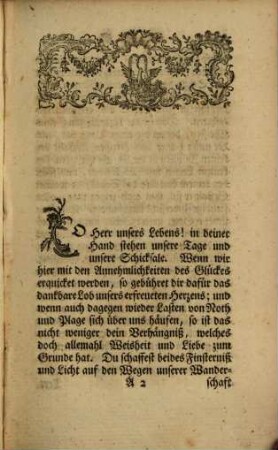 O Herr unsers Lebens! in deiner
Hand stehen unsere Tage und
unsere Schicksale. Wenn wir
hier mit den Annehmlichkeiten des Glückes
erquicket werden, so gebühret dir dafür das
dankbare Lob unsers erfreueten Herzens; und
wenn auch dagegen wieder Lasten von Noth
und Plage sich über uns häufen, so ist das
nicht weniger dein Verhängniß, welches
doch allemahl Weisheit und Liebe zum
Grunde hat. Du schaffest beides Finsterniß
und Licht auf den Wegen unserer Wander-
A 2 schaft